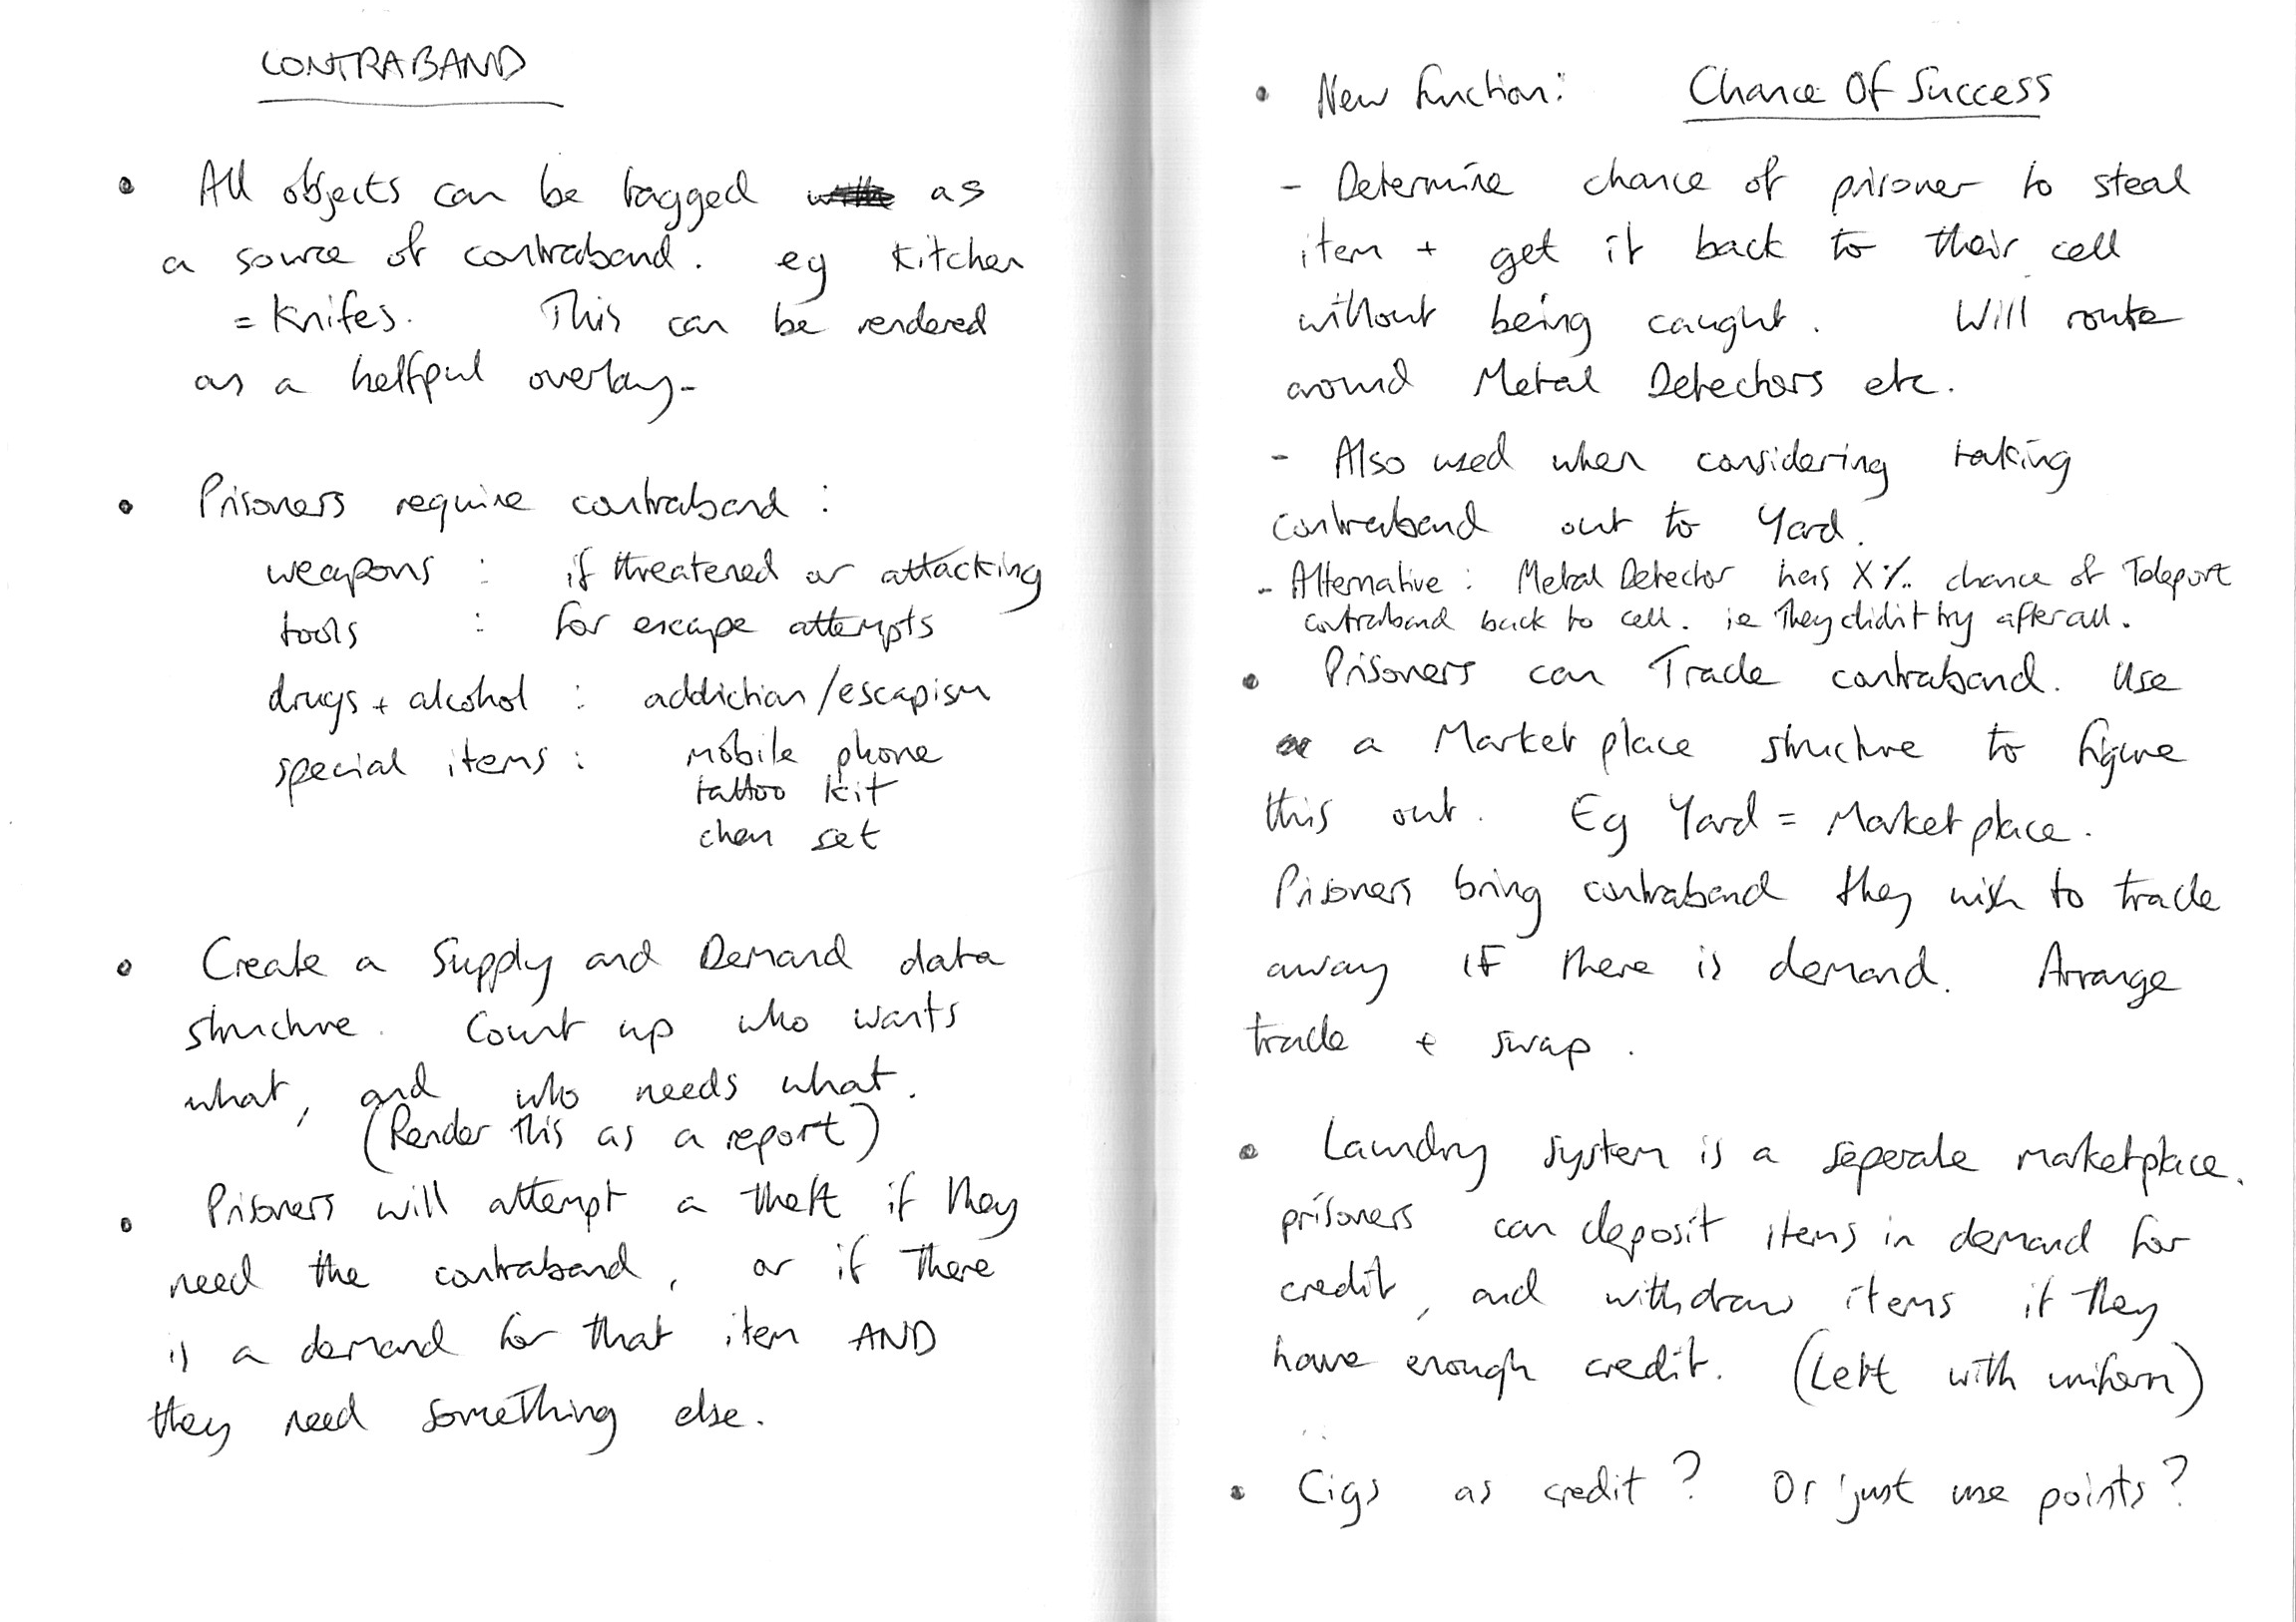 CONTRABAND
• All objects can be tagged as
a source of contraband. eg Kitchen
= Knifes. This can be rendered
as a helfpul overlay-
• Prisoners require contraband :
weapons : if threatened or attacking
tools : for escape attempts
drugs + alcohol : addiction/escapism
special items : mobile phone
tattoo kit
chess set
• Create a Supply and Demand data
structure. Count up who wants
what, and who needs what.
(Render this as a report)
• Prisoners will attempt a theft if they
need the contraband, or if there
is a demand for that item AND
they need something else.
• New function: Chance Of Success
- Determine chance of prisoner to steal
item + get it back to their cell
without being caught. Will route
around Metal Detectors etc.
- Also used when considering taking
contraband out to Yard.
- Alternative : Metal Detector has X%. chance of Teleport
contraband back to cell. ie They didn't try after all.
• Prisoners can Trade contraband. Use
a Market place structure to figure
this out. Eg Yard = Market place.
Prisoners bring contraband they wish to trade
away IF there is demand. Arrange
trade + swap.
• Laundry system is a seperate marketplace.
prisoners can deposit items in demand for
credit, and withdraw items if they
have enough credit. (Left with uniform)
• Cigs as credit? Or just use points?